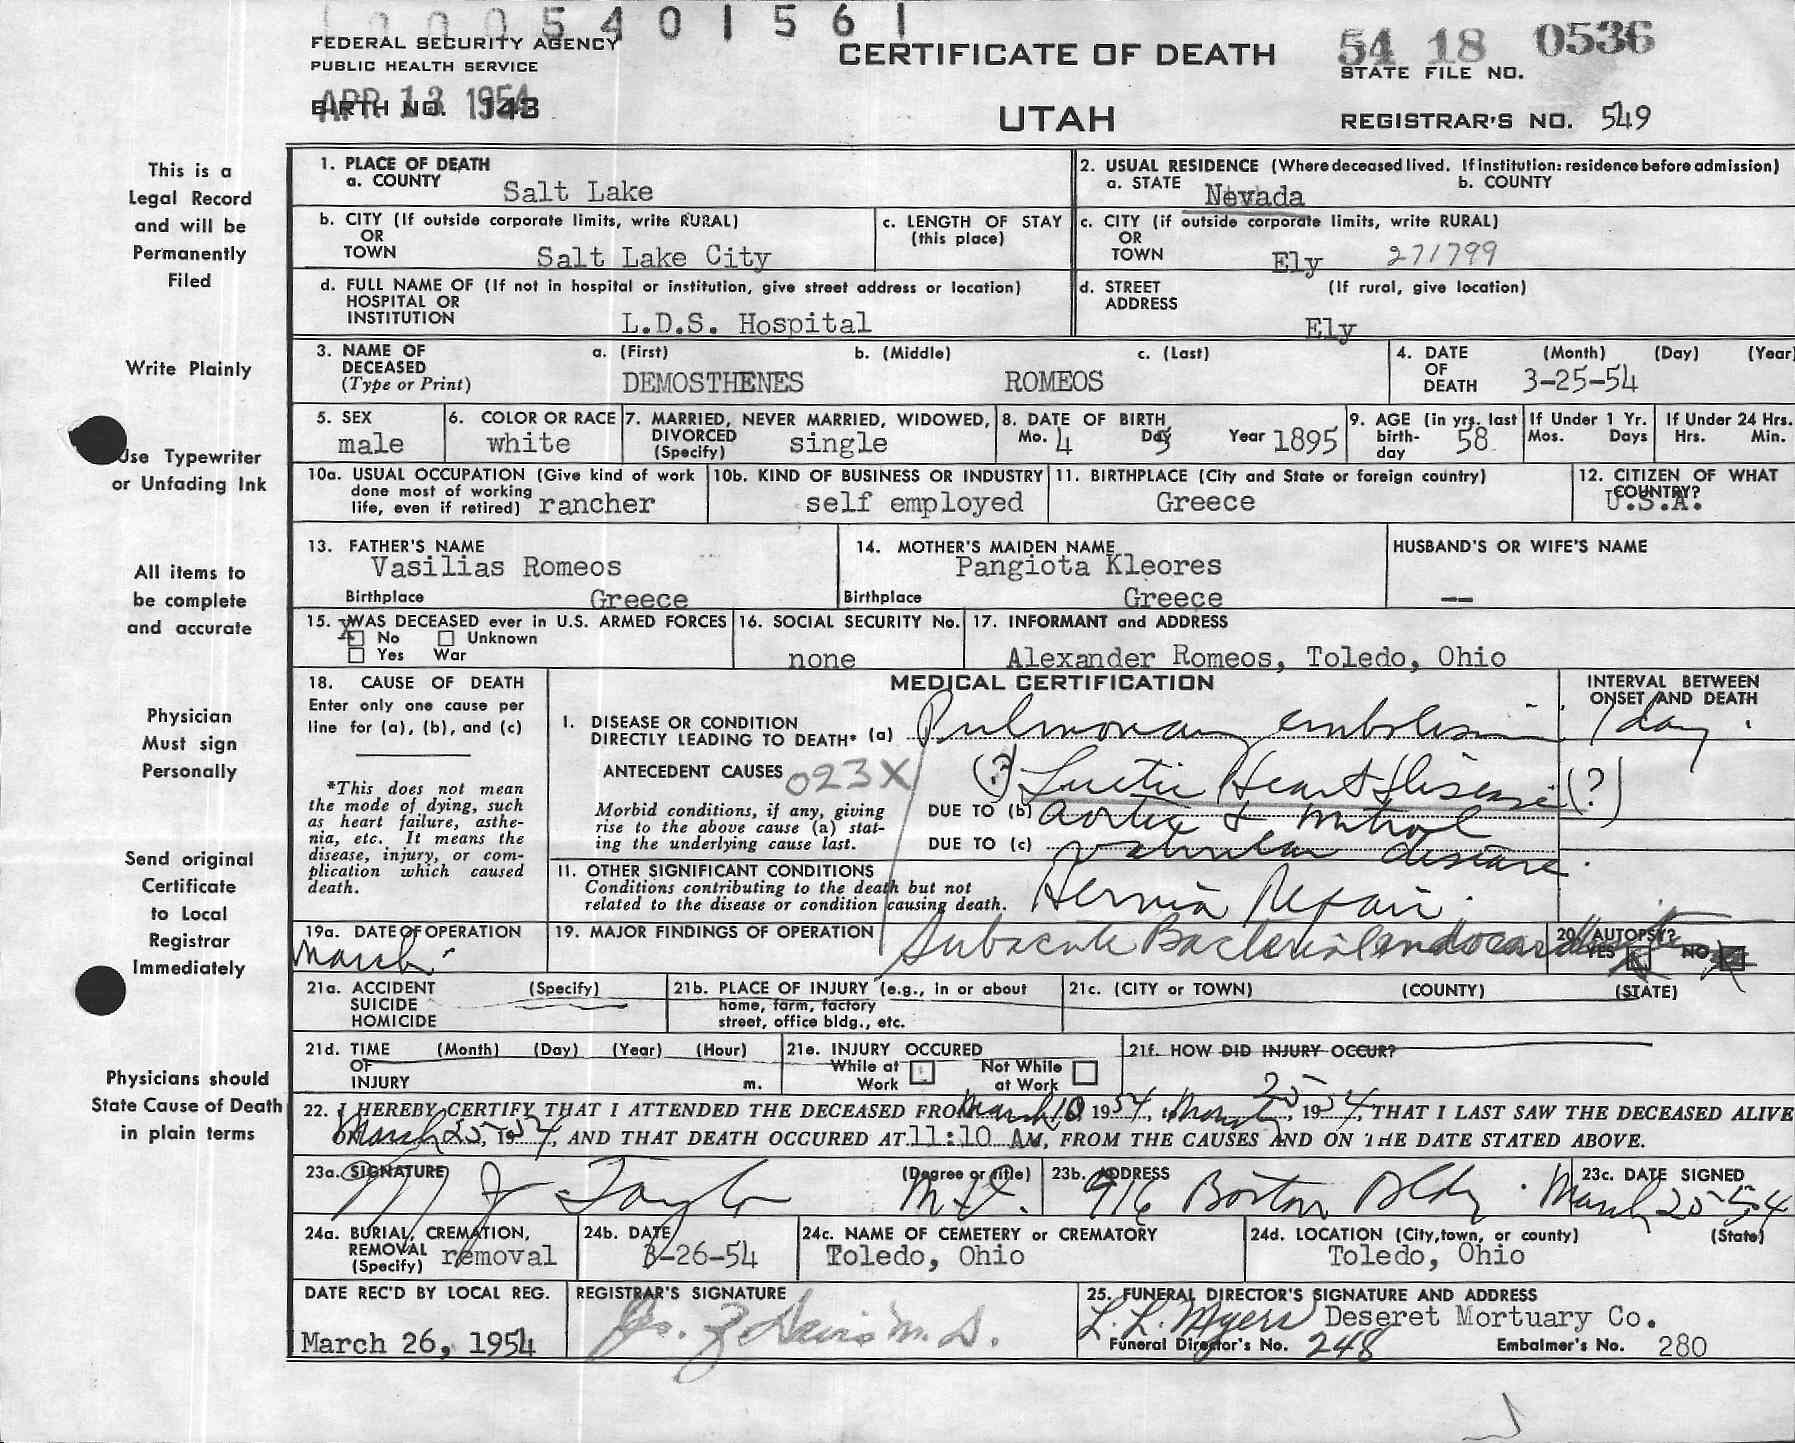 0005401561
FEDERAL SECURITY AGENCY
PUBLIC HEALTH SERVICE
CERTIFICATE OF DEATH
54 18 0536
STATE FILE NO.
APR 13 1954
BIRTH NO. 143
UTAH
REGISTRAR'S NO. 549
This is a
Legal Record
and will be
Permanently
Filed
Write Plainly
Use Typewriter
or Unfading Ink
All items to
be complete
and accurate
Physician
Must sign
Personally
Send original
Certificate
to Local
Registrar
Immediately
Physicians should
State Cause of Death
in plain terms
1. PLACE OF DEATH
a. COUNTY Salt Lake
2. USUAL RESIDENCE (Where deceased lived. If institution: residence before admission)
a. STATE Nevada b. COUNTY
b. CITY (If outside corporate limits, write RURAL)
OR
TOWN Salt Lake City
c. LENGTH OF STAY
(this place)
c. CITY (if outside corporate limits, write RURAL)
OR
TOWN Ely 271799
d. FULL NAME OF (If not in hospital or institution, give street address or location)
HOSPITAL OR
INSTITUTION L.D.S. Hospital
d. STREET (If rural, give location)
ADDRESS
Ely
3. NAME OF a. (First) b. (Middle) c. (Last)
DECEASED
(Type or Print) DEMOSTHENES ROMEOS
4. DATE (Month) (Day) (Year)
OF
DEATH 3-25-54
5. SEX
male
6. COLOR OR RACE
white
7. MARRIED, NEVER MARRIED, WIDOWED,
DIVORCED
(Specify) single
8. DATE OF BIRTH
Mo. 4 Day 5 Year 1895
9. AGE (in yrs. last
birth-
day 58
If Under 1 Yr.
Mos. Days
If Under 24 Hrs.
Hrs. Min.
10a. USUAL OCCUPATION (Give kind of work
done most of working
life, even if retired) rancher
10b. KIND OF BUSINESS OR INDUSTRY
self employed
11. BIRTHPLACE (City and State or foreign country)
Greece
12. CITIZEN OF WHAT
COUNTRY?
U.S.A.
13. FATHER'S NAME
Vasilias Romeos
Birthplace Greece
14. MOTHER'S MAIDEN NAME
Pangiota Kleores
Birthplace Greece
HUSBAND'S OR WIFE'S NAME
--
15. WAS DECEASED ever in U.S. ARMED FORCES
X No Unknown
Yes War
16. SOCIAL SECURITY No.
none
17. INFORMANT and ADDRESS
Alexander Romeos, Toledo, Ohio
18. CAUSE OF DEATH
Enter only one cause per
line for (a), (b), and (c)
*This does not mean
the mode of dying, such
as heart failure, asthe-
nia, etc. It means the
disease, injury, or com-
plication which caused
death.
MEDICAL CERTIFICATION
INTERVAL BETWEEN
ONSET AND DEATH
I. DISEASE OR CONDITION
DIRECTLY LEADING TO DEATH* (a) Pulmonary embolism 1 day.
ANTECEDENT CAUSES 023X (?) Luetic Heart Disease (?)
Morbid conditions, if any, giving
rise to the above cause (a) stat-
ing the underlying cause last.
DUE TO (b) Aortic & mitral
DUE TO (c) valvular disease.
11. OTHER SIGNIFICANT CONDITIONS
Conditions contributing to the death but not
related to the disease or condition causing death.
Hernia Repair.
19a. DATE OF OPERATION
March.
19. MAJOR FINDINGS OF OPERATION
Subacute Bacterial endocarditis
20. AUTOPSY?
YES NO
21a. ACCIDENT (Specify)
SUICIDE
HOMICIDE
21b. PLACE OF INJURY (e.g., in or about
home, farm, factory
street, office bldg., etc.
21c. (CITY or TOWN) (COUNTY) (STATE)
21d. TIME (Month) (Day) (Year) (Hour)
OF
INJURY m.
21e. INJURY OCCURED
While at Work
Not While at Work
21f. HOW DID INJURY OCCUR?
22. I HEREBY CERTIFY THAT I ATTENDED THE DECEASED FROM March 10 1954, to March 25, 1954, THAT I LAST SAW THE DECEASED ALIVE
ON March 25, 1954, AND THAT DEATH OCCURED AT 11:10 AM, FROM THE CAUSES AND ON THE DATE STATED ABOVE.
23a. SIGNATURE (Degree or title)
J Taylor M.D.
23b. ADDRESS
916 Boston Bldg.
23c. DATE SIGNED
March 25-54
24a. BURIAL, CREMATION,
REMOVAL
(Specify) removal
24b. DATE
3-26-54
24c. NAME OF CEMETERY or CREMATORY
Toledo, Ohio
24d. LOCATION (City, town, or county) (State)
Toledo, Ohio
DATE REC'D BY LOCAL REG.
March 26, 1954
REGISTRAR'S SIGNATURE
Davis M.D.
25. FUNERAL DIRECTOR'S SIGNATURE AND ADDRESS
L. L. Myers Deseret Mortuary Co.
Funeral Director's No. 248 Embalmer's No. 280